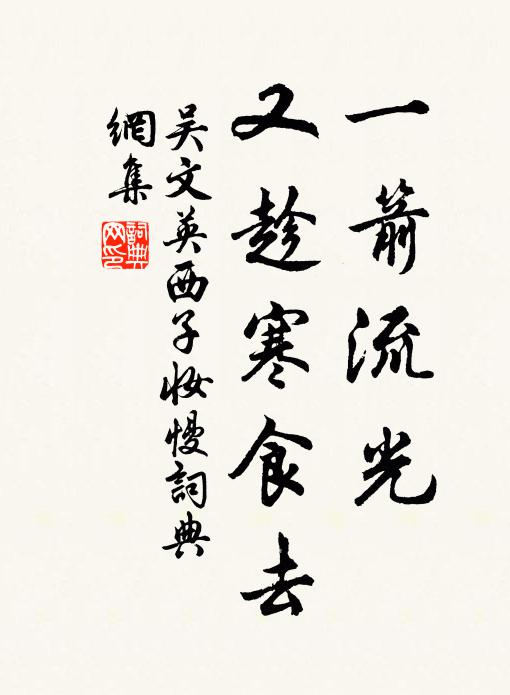 一箭流光
又趁寒食去
吴文英西子妆慢詞典
網集
詞典
网印